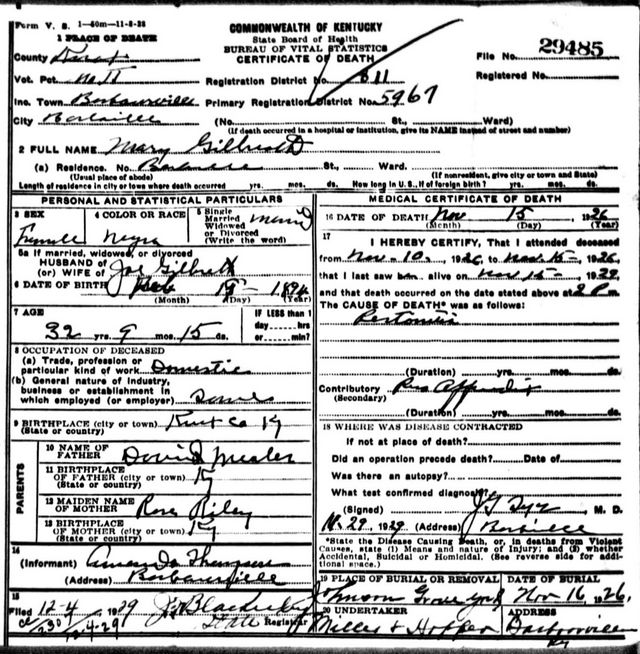 Form V. S. 1—50m—11-8-28
COMMONWEALTH OF KENTUCKY
State Board of Health
BUREAU OF VITAL STATISTICS
CERTIFICATE OF DEATH
1 PLACE OF DEATH
County Knox
File No. 29485
Vot. Pct. No II Registration District No 511 Registered No.
Inc. Town Barbourville Primary Registration District No. 5967
City (No. St., Ward)
(If death occurred in a hospital or institution, give its NAME instead of street and number)
2 FULL NAME Mary Gilbreath
(a) Residence. No. St., Ward.
(Usual place of abode) (If nonresident, give city or town and State)
Length of residence in city or town where death occurred yrs. mos. ds. How long in U. S., if of foreign birth? yrs. mos. ds.
PERSONAL AND STATISTICAL PARTICULARS
3 SEX 4 COLOR OR RACE 5 Single Married Widowed or Divorced (Write the word) Married
Female Negro
5a If married, widowed, or divorced
HUSBAND OF
(or) WIFE OF Joe Gilbreath
6 DATE OF BIRTH Feb 1894
(Month) (Day) (Year)
7 AGE IF LESS than 1 day----hrs or----min?
32 yrs 9 mos. 15 ds.
8 OCCUPATION OF DECEASED
(a) Trade, profession or particular kind of work Domestic
(b) General nature of industry, business or establishment in which employed (or employer)
9 BIRTHPLACE (city or town) Knox Co Ky
(State or country)
PARENTS
10 NAME OF FATHER David
11 BIRTHPLACE OF FATHER (city or town) Ky
(State or country)
12 MAIDEN NAME OF MOTHER Rose Riley
13 BIRTHPLACE OF MOTHER (city or town) Ky
(State or country)
14
(Informant) Amanda Thompson
(Address) Barbourville
15
Filed 12-4, 1929 Registrar
12-4-29 State
MEDICAL CERTIFICATE OF DEATH
16 DATE OF DEATH Nov 15, 1926
(Month) (Day) (Year)
17
I HEREBY CERTIFY, That I attended deceased
from Nov. 10, 1926, to Nov 15, 1926,
that I last saw h alive on Nov 15, 1929,
and that death occurred on the date stated above at 2 P m.
THE CAUSE OF DEATH* was as follows:
(Duration) yrs. mos. ds.
Contributory Appendix
(Secondary)
(Duration) yrs. mos. ds.
18 WHERE WAS DISEASE CONTRACTED
If not at place of death?
Did an operation precede death? Date of
Was there an autopsy?
What test confirmed diagnosis?
(Signed) M. D.
29, 1929 (Address)
*State the Disease Causing Death, or, in deaths from Violent Causes, state (1) Means and nature of Injury; and (2) whether Accidental, Suicidal or Homicidal. (See reverse side for additional space.)
19 PLACE OF BURIAL OR REMOVAL DATE OF BURIAL
Johnson Grove Nov 16, 1926,
20 UNDERTAKER ADDRESS
Miller & Hopper Barbourville Ky